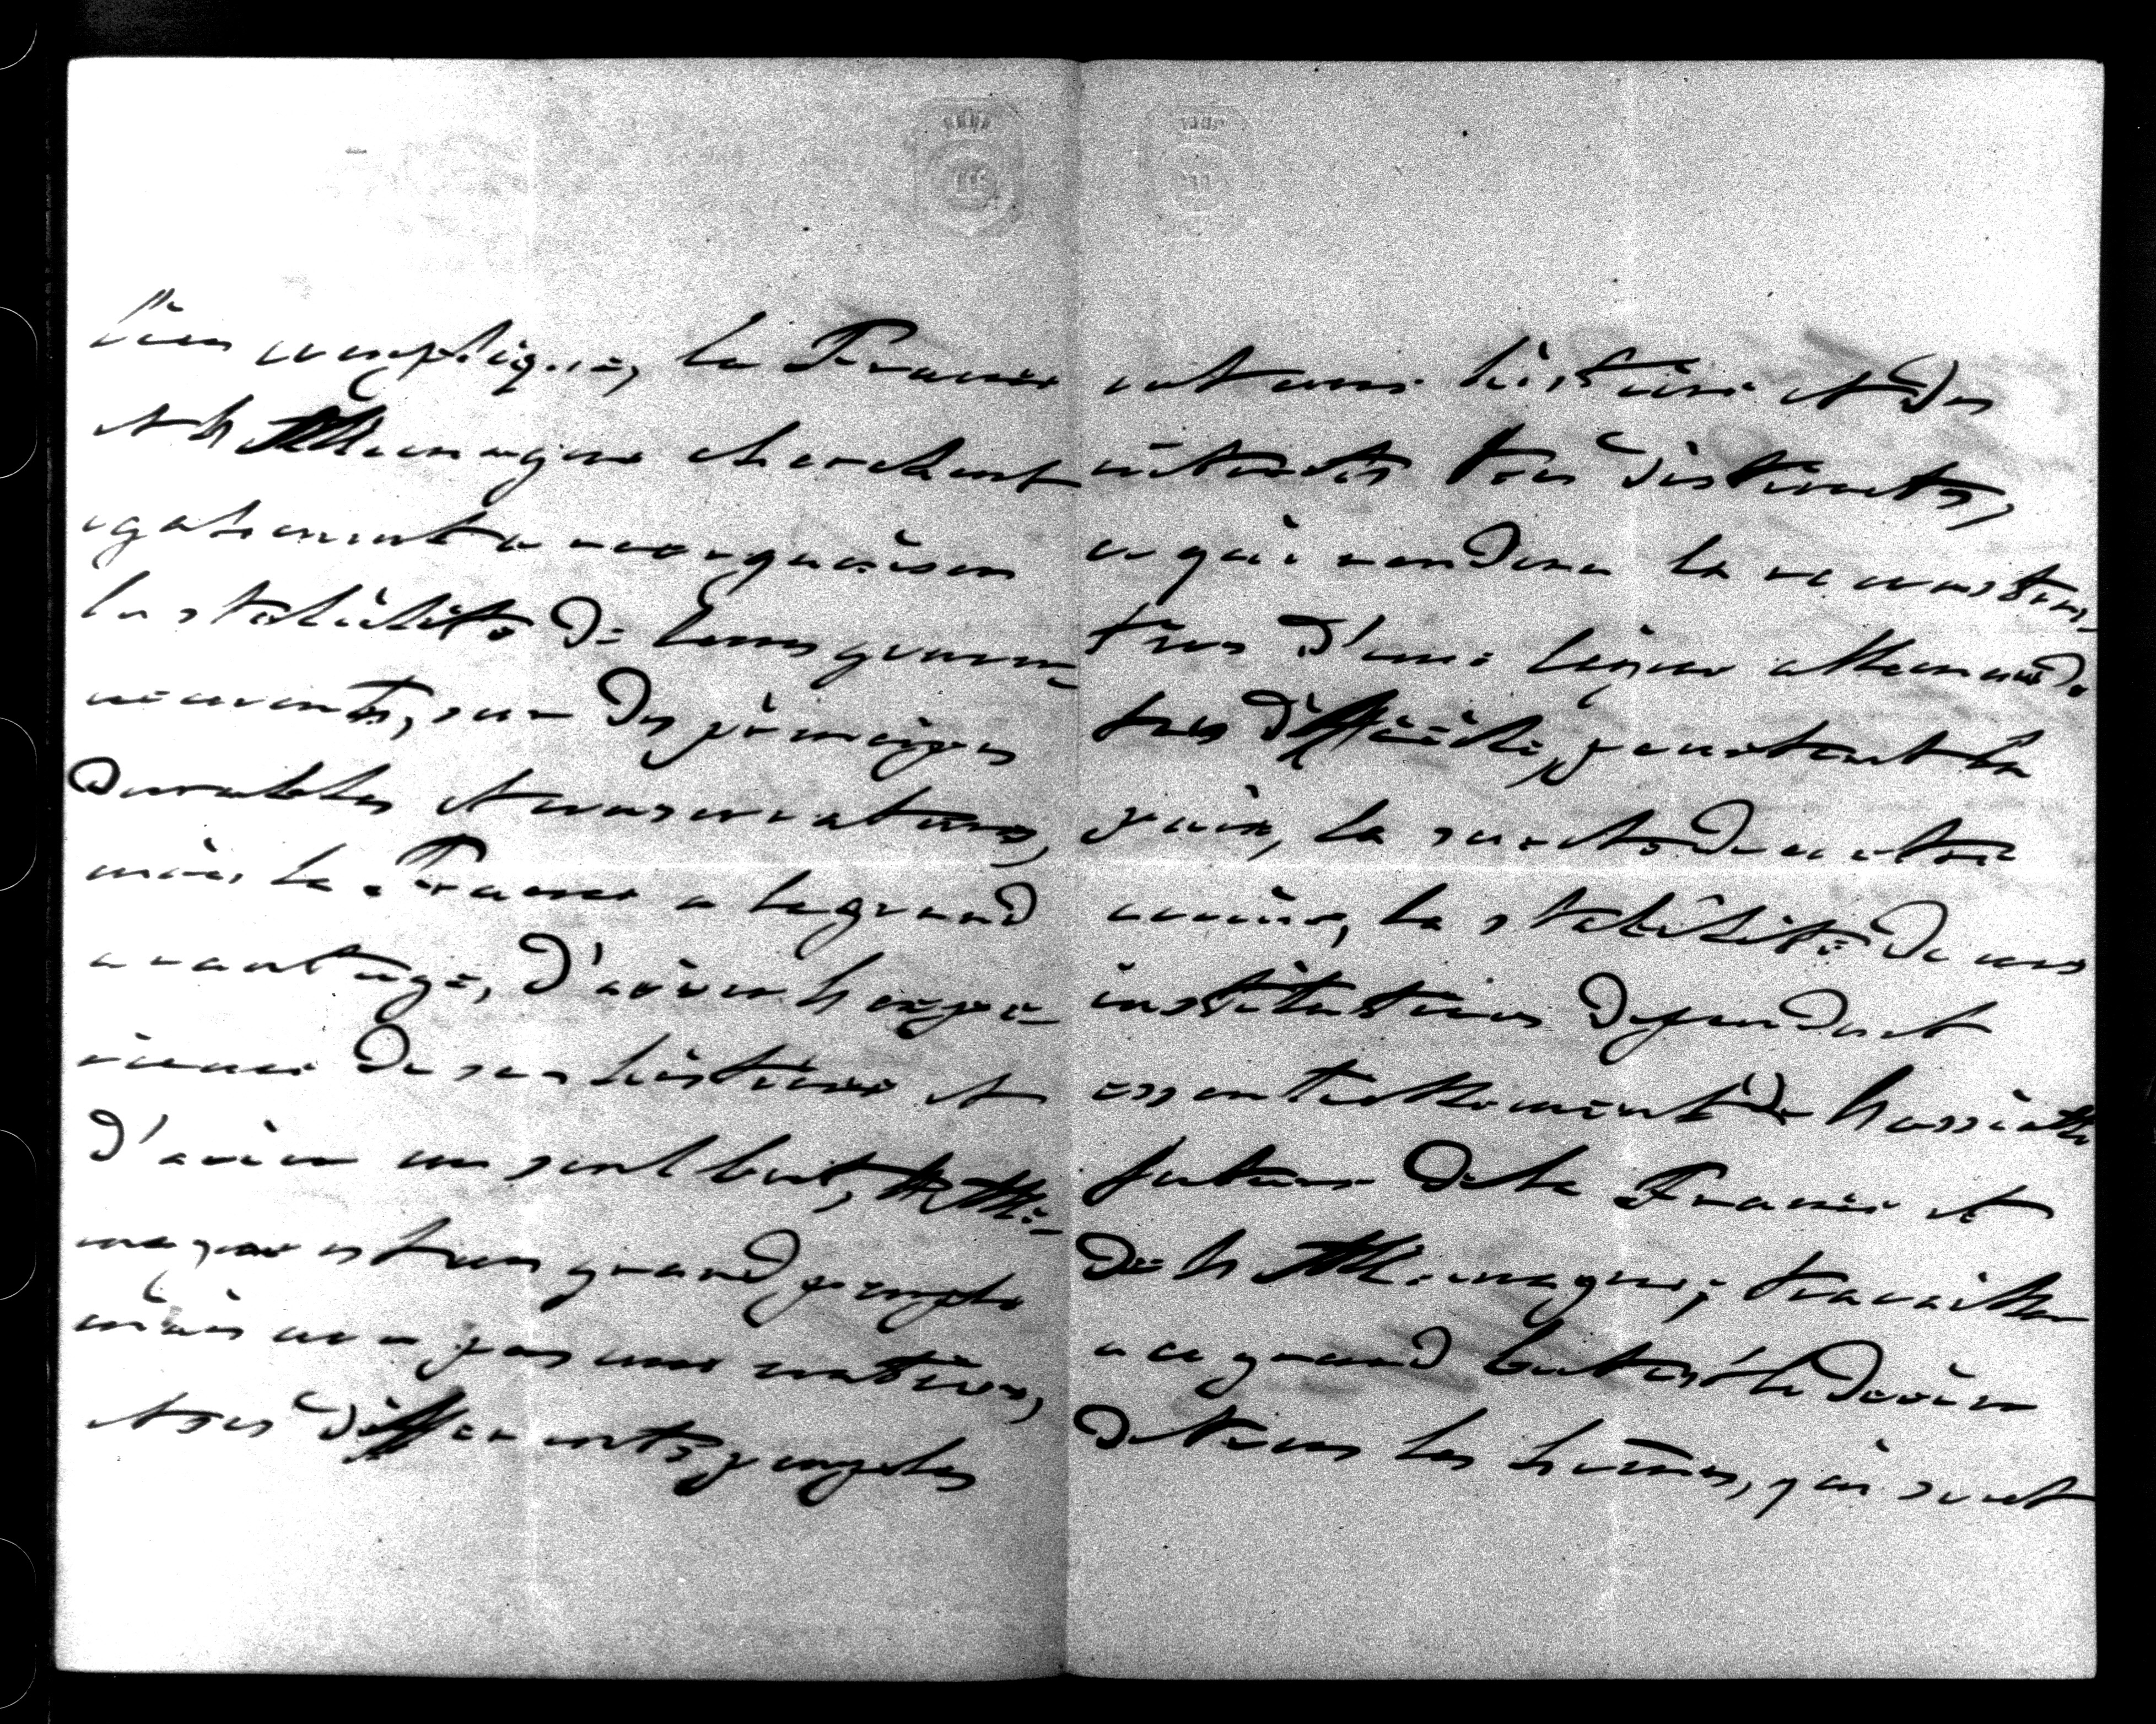 bien compliqué, la France
et l'Allemagne cherchent
egalement a reconquérir
la stabilité de leurs gouver-
nements, sur des principes
durables et conservateurs,
mais la France a le grand
avantage, d'avoir l'expe-
rience de son histoire et
d'avoir un seul but, l'Alle-
magne est un grand peuple
mais non pas une nation,
et ses differents peuples
ont une histoire et des
interets tres distincts,
ce qui rendera la reconstruc-
tion d'une ligue allemande
tres difficile, pourtant la
paix, la sureté de notre
avenir, la stabilité de nos
institutions dependent
essentiellement de l'assiette
future de la France et
de l'Allemagne; travailler
a ce grand but est le devoir
de tous les hommes, qui sont